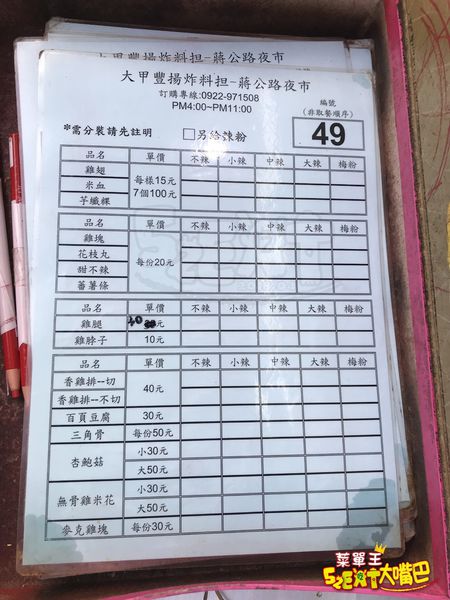 大甲豐揚炸料担-蔣公路夜市
大甲豐揚炸料担-蔣公路夜市
訂購專線:0922-971508
PM4:00~PM11:00
編號
(非取餐順序)
*需分裝請先註明 □另給辣粉
49
品名 單價 不辣 小辣 中辣 大辣 梅粉
雞翅
米血 每樣15元
芋纖粿 7個100元
品名 單價 不辣 小辣 中辣 大辣 梅粉
雞塊
花枝丸 每份20元
甜不辣
蕃薯條
品名 單價 不辣 小辣 中辣 大辣 梅粉
雞腿 40元
雞脖子 10元
品名 單價 不辣 小辣 中辣 大辣 梅粉
香雞排--切 40元
香雞排--不切
百頁豆腐 30元
三角骨 每份50元
杏鮑菇 小30元
大50元
無骨雞米花 小30元
大50元
麥克雞塊 每份30元
菜單王
52EAT大嘴巴